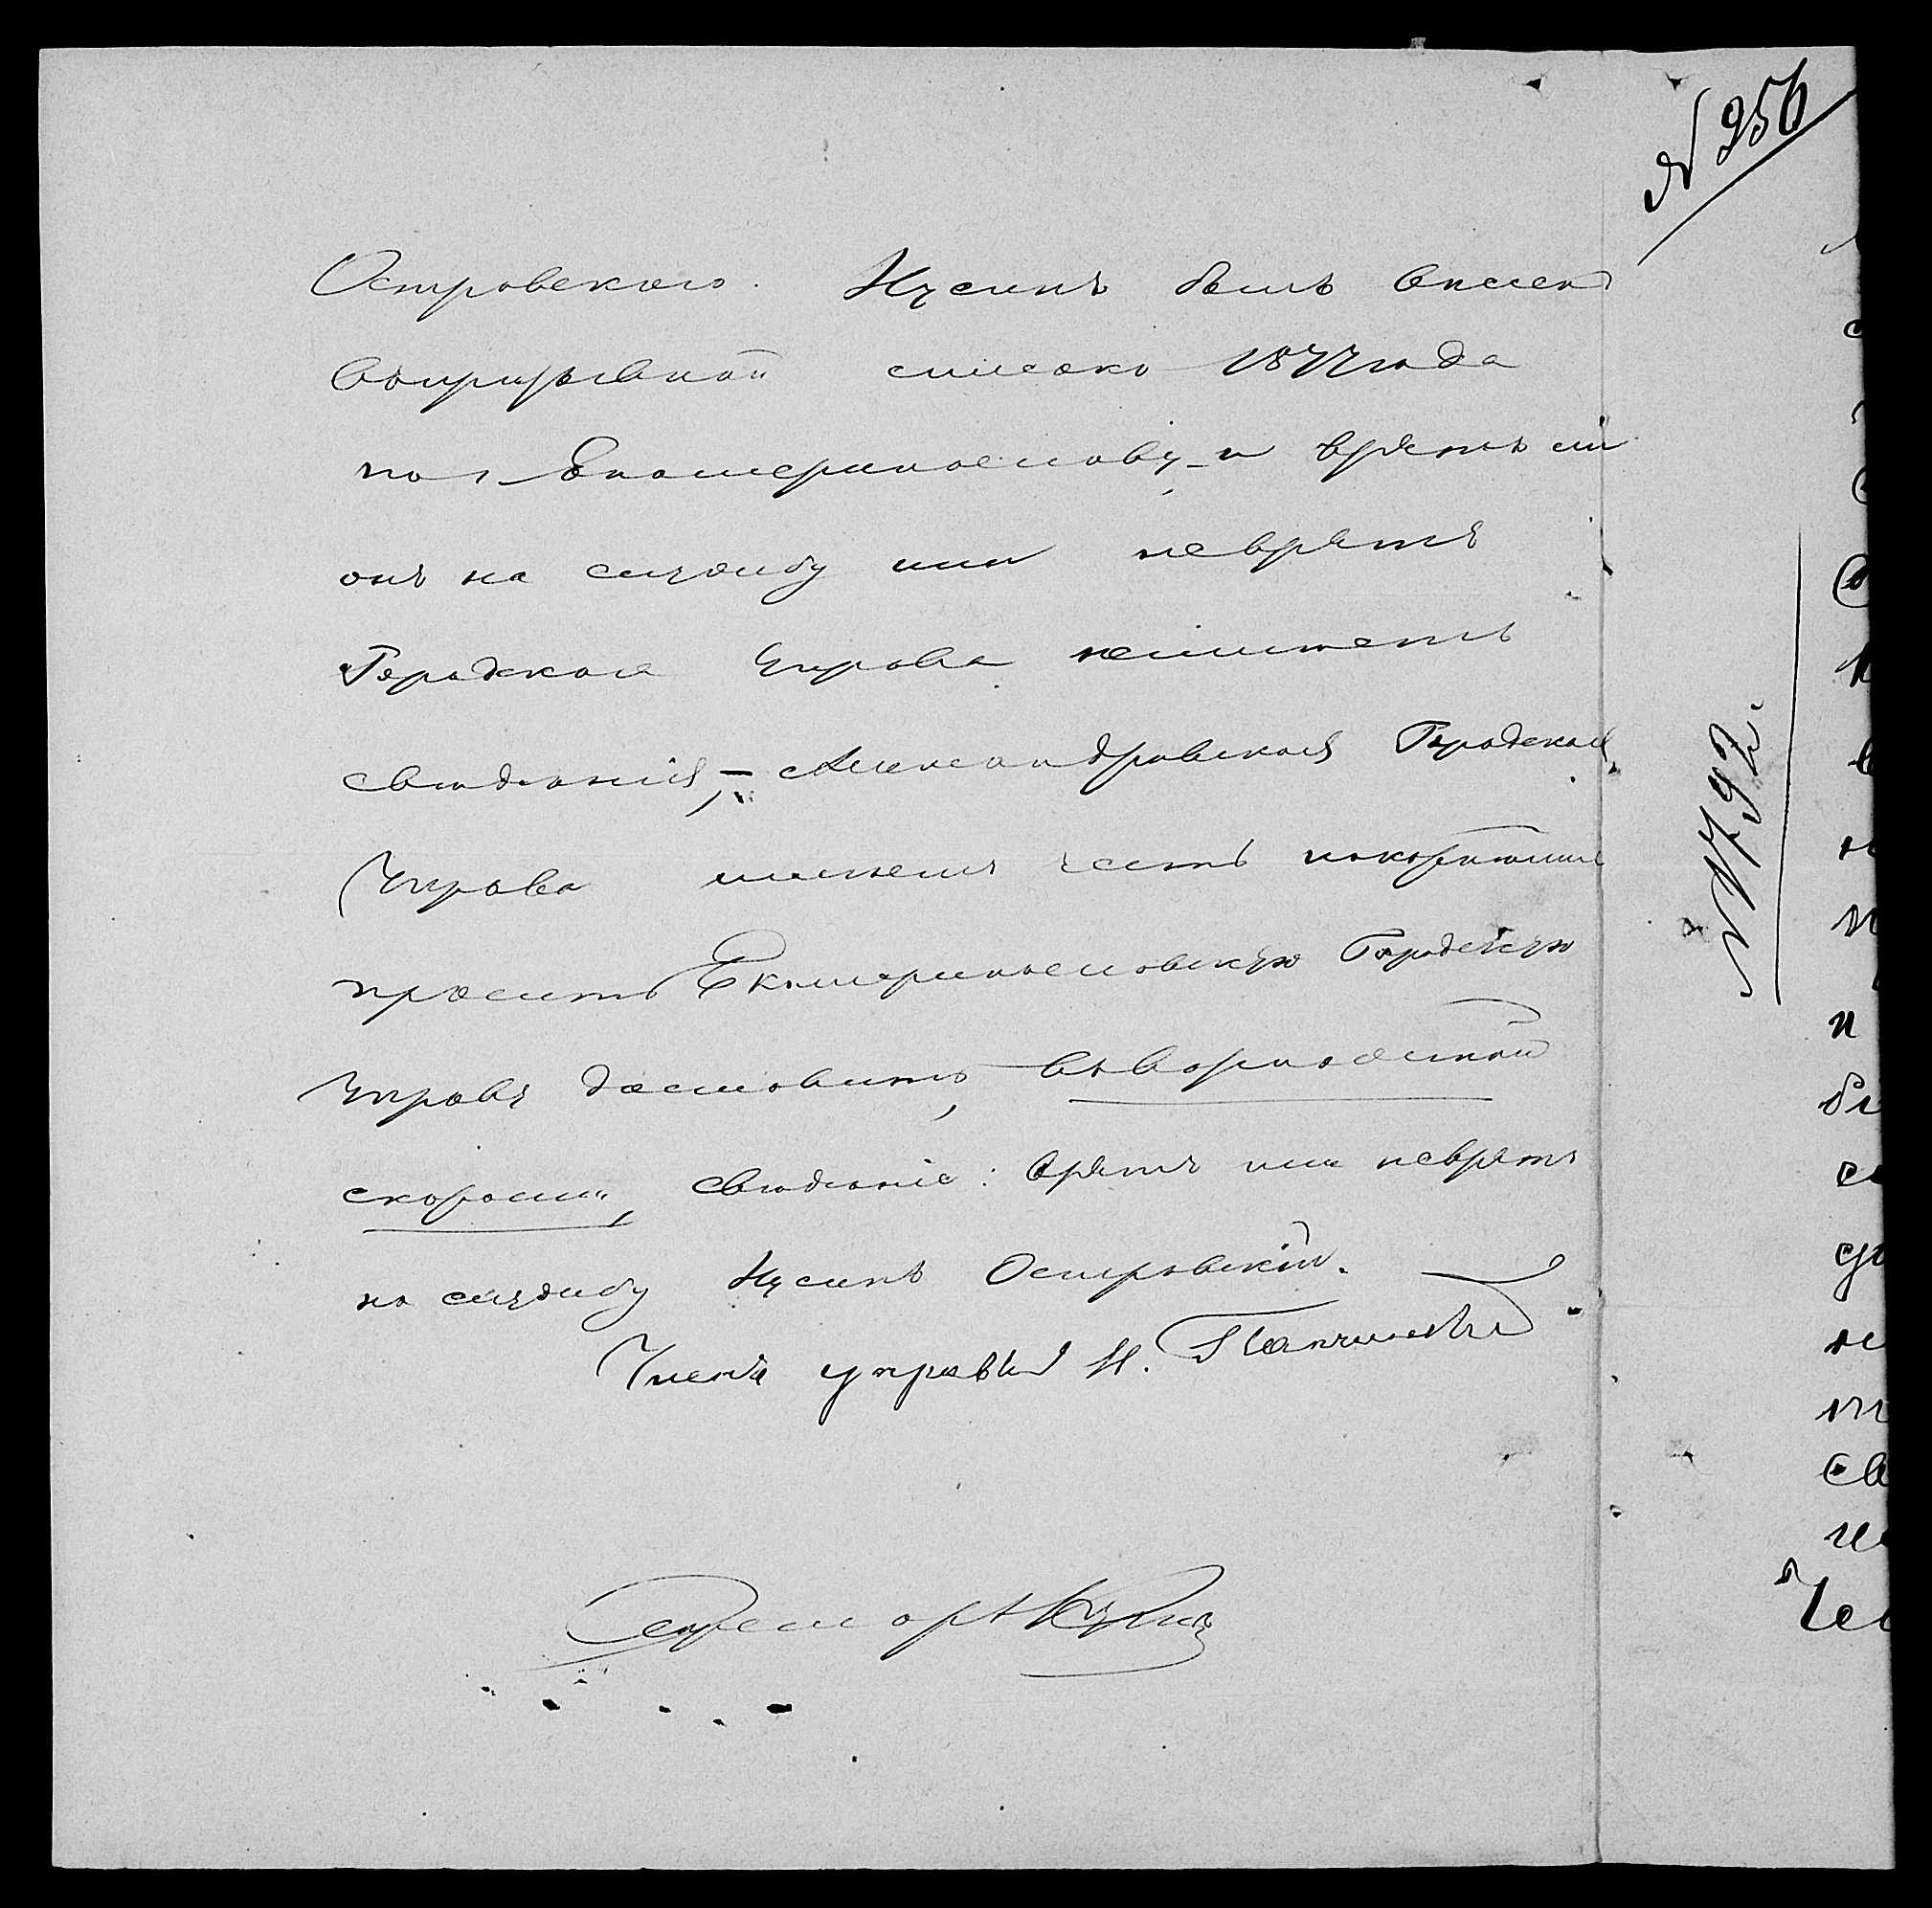 № 256
Островскаго. Нусинъ былъ внесенъ
въ призывной списокъ 1877 года
по г. Екатеринославу, и взятъ ли
онъ на службу или невзятъ
Городская Управа неимѣетъ
свѣденія, – Александровская Городская
Управа имѣетъ честь покорнѣйше
просить Екатеринославскую Городскую
Управу доставить, въ возможной
скорости, свѣденіе: взятъ или невзятъ
на службу Нусинъ Островскій.
Членъ управы И.
Секретарь
№ 792.